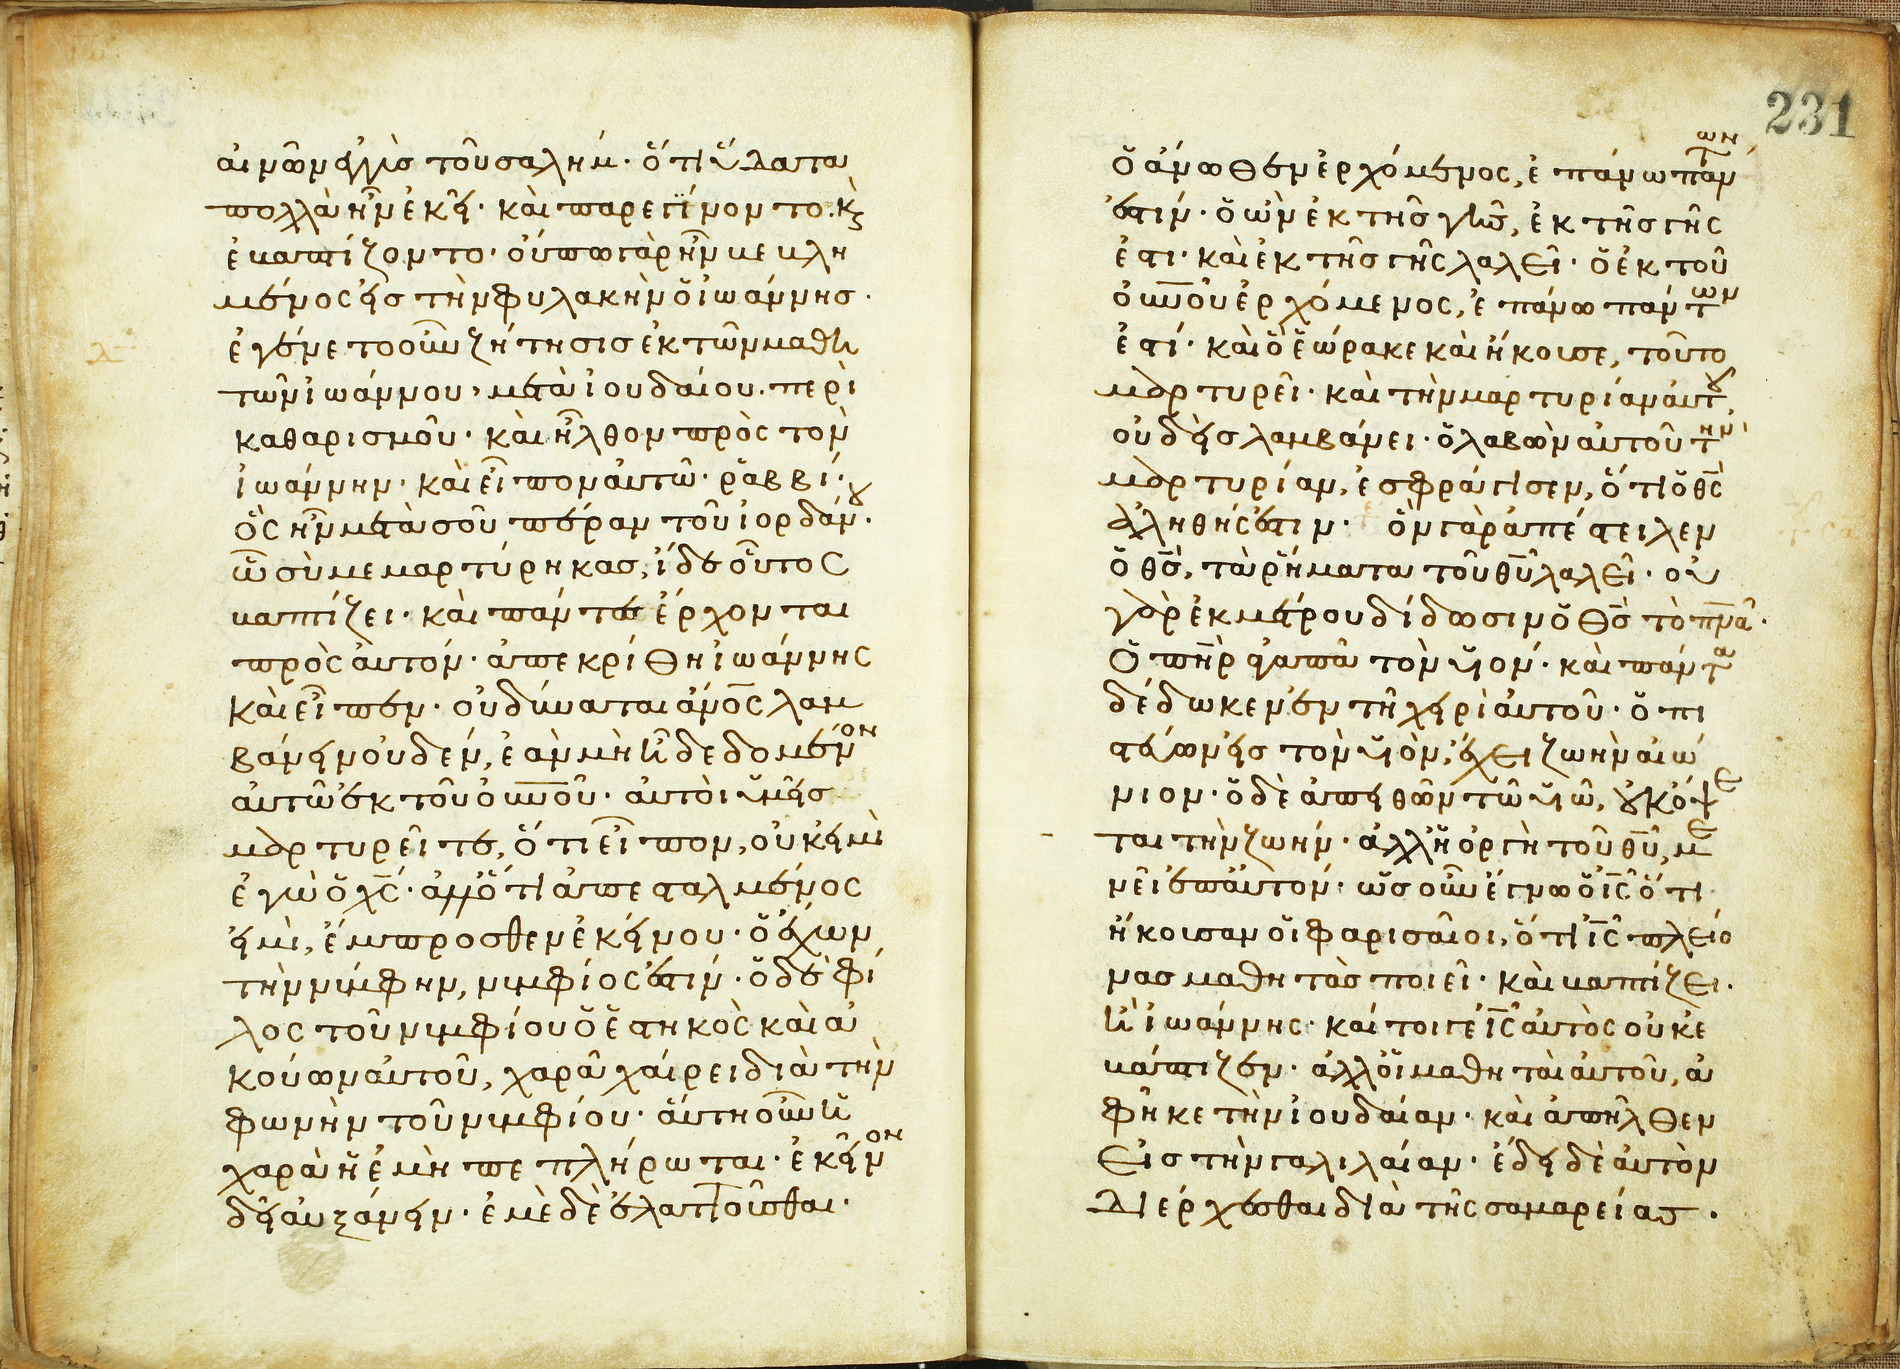 αἰνῶν ἐγγὺς τοῦ σαλήμ· ὅτι ὕδατα
πολλὰ ἦν ἐκεῖ· καὶ παρεγίνοντο κ(αὶ)
ἐβαπτίζοντο· οὔπω γὰρ ἦν βεβλη
μένος εἰς τὴν φυλακὴν ὁ ἰωάννης·
ἐγένετο οὖν ζήτησις ἐκ τῶν μαθη
τῶν ἰωάννου, μετὰ ἰουδαίου· περὶ
καθαρισμοῦ· καὶ ἦλθον πρὸς τὸν
ἰωάννην· καὶ εἶπον αὐτῶ· ῥαββί·
ὃς ἦν μετὰ σοῦ πέραν τοῦ ἰορδάνου·
ὧ σὺ μεμαρτύρηκας, ἴδε οὗτος
βαπτίζει· καὶ πάντες ἔρχονται
πρὸς αὐτόν· ἀπεκρίθη ἰωάννης
καὶ εἶπεν· οὐ δύναται ἄνος λαμ
βάνειν οὐδέν, ἐὰν μὴ ἦ δεδομένον
αὐτῶ ἐκ τοῦ οὐνοῦ· αὐτοὶ ὑμεῖς
μαρτυρεῖτε, ὅτι εἶπον, οὐκ εἰμὶ
ἐγὼ ὁ χς· ἀλλ' ὅτι ἀπεσταλμένος
εἰμὶ, ἔμπροσθεν ἐκείνου· ὁ ἔχων
τὴν νύμφην, νυμφίος ἐστίν· ὁ δὲ φί
λος τοῦ νυμφίου ὁ ἑστηκὸς καὶ ἀ
κούων αὐτοῦ, χαρᾶ χαίρει διὰ τὴν
φωνὴν τοῦ νυμφίου· αὕτη οὖν ἡ
χαρὰ ἡ ἐμὴ πεπλήρωται· ἐκεῖνον
δεῖ αὐξάνειν· ἐμὲ δὲ ἐλαττοῦσθαι·
231
ὁ ἄνωθεν ἐρχόμενος, ἐπάνω πάντων
ἐστίν· ὁ ὢν ἐκ τῆς γῆς, ἐκ τῆς γῆς
ἐστι· καὶ ἐκ τῆς γῆς λαλεῖ· ὁ ἐκ τοῦ
οὐνοῦ ἐρχόμενος, ἐπάνω πάντων
ἐστί· καὶ ὃ ἑώρακε καὶ ἤκουσε, τοῦτο
μαρτυρεῖ· καὶ τὴν μαρτυρίαν αὐτοῦ,
οὐδεὶς λαμβάνει· ὁ λαβὼν αὐτοῦ τὴν
μαρτυρίαν, ἐσφράγισεν, ὅτι ὁ θς
ἀληθής ἐστιν· ὃν γὰρ ἀπέστειλεν
ὁ θς, τὰ ῥήματα τοῦ θυ λαλεῖ· οὐ
γὰρ ἐκ μέτρου δίδωσιν ὁ θς τὸ πνα·
ὁ πηρ ἀγαπᾶ τὸν υἱόν· καὶ πάντα
δέδωκεν ἐν τῆ χειρὶ αὐτοῦ· ὁ πι
στεύων εἰς τὸν υἱὸν, ἔχει ζωὴν αἰώ
νιον· ὁ δὲ ἀπειθῶν τῶ υἱῶ, οὐκ ὄψε
ται τὴν ζωήν· ἀλλ' ἡ ὀργὴ τοῦ θυ, μέ
νει ἐπ' αὐτόν· ὡς οὖν ἔγνω ὁ ις ὅτι
ἤκουσαν οἱ φαρισαῖοι, ὅτι ις πλείο
νας μαθητὰς ποιεῖ· καὶ βαπτίζει·
ἢ ἰωάννης· καί τοι γε ις αὐτὸς οὐκ ἐ
βάπτιζεν· ἀλλ' οἱ μαθηταὶ αὐτοῦ, ἀ
φῆκε τὴν ἰουδαίαν· καὶ ἀπῆλθεν
εἰς τὴν γαλιλαίαν· ἔδει δὲ αὐτὸν
διέρχεσθαι διὰ τῆς σαμαρείας·